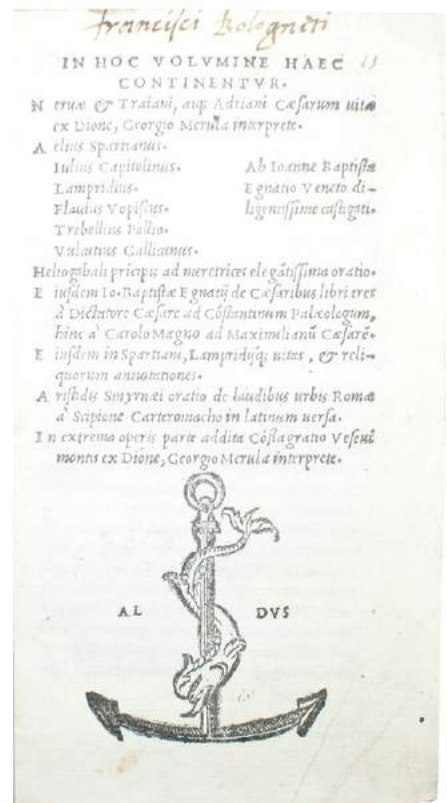 Francisci Bologneti
IN HOC VOLVMINE HAEC 13
CONTINENTVR.
N eruæ & Traiani, atq; Adriani Cæsarum uitæ
ex Dione, Georgio Merula interprete.
A elius Spartianus.
Iulius Capitolinus.
Lampridius.
Flauius Vopiscus.
Trebellius Pollio.
Vulcatius Gallicanus.
Ab Ioanne Baptista
Egnatio Veneto di-
ligentissime castigati.
Heliogabali prīcipis ad meretrices elegātissima oratio.
E iusdem Io. Baptistæ Egnatij de Cæsaribus libri tres
à Dictatore Cæsare ad Cōstantinum Palæologum,
hinc a' Carolo Magno ad Maximilianū Cæsarē.
E iusdem in Spartiani, Lampridijq; uitas, & reli-
quorum annotationes.
A ristidis Smyrnæi oratio de laudibus urbis Romæ
a' Scipione Carteromacho in latinum uersa.
I n extrema operis parte addita Cōflagratio Veseui
montis ex Dione, Georgio Merula interprete.
AL DVS